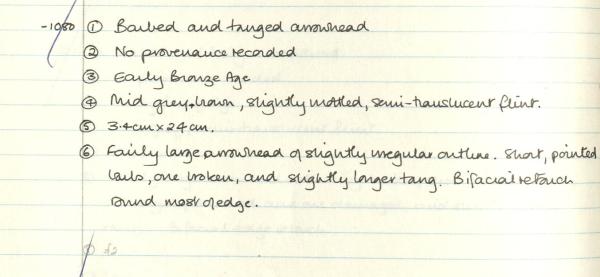 -1080 ① Barbed and tanged arrowhead
② No provenance recorded
③ Early Bronze Age
④ Mid grey-brown, slightly mottled, semi-translucent flint.
⑤ 3.4cm x 24cm.
⑥ Fairly large arrowhead of slightly irregular outline. Short, pointed
barbs, one broken, and slightly longer tang. Bifacial retouch
round most of edge.